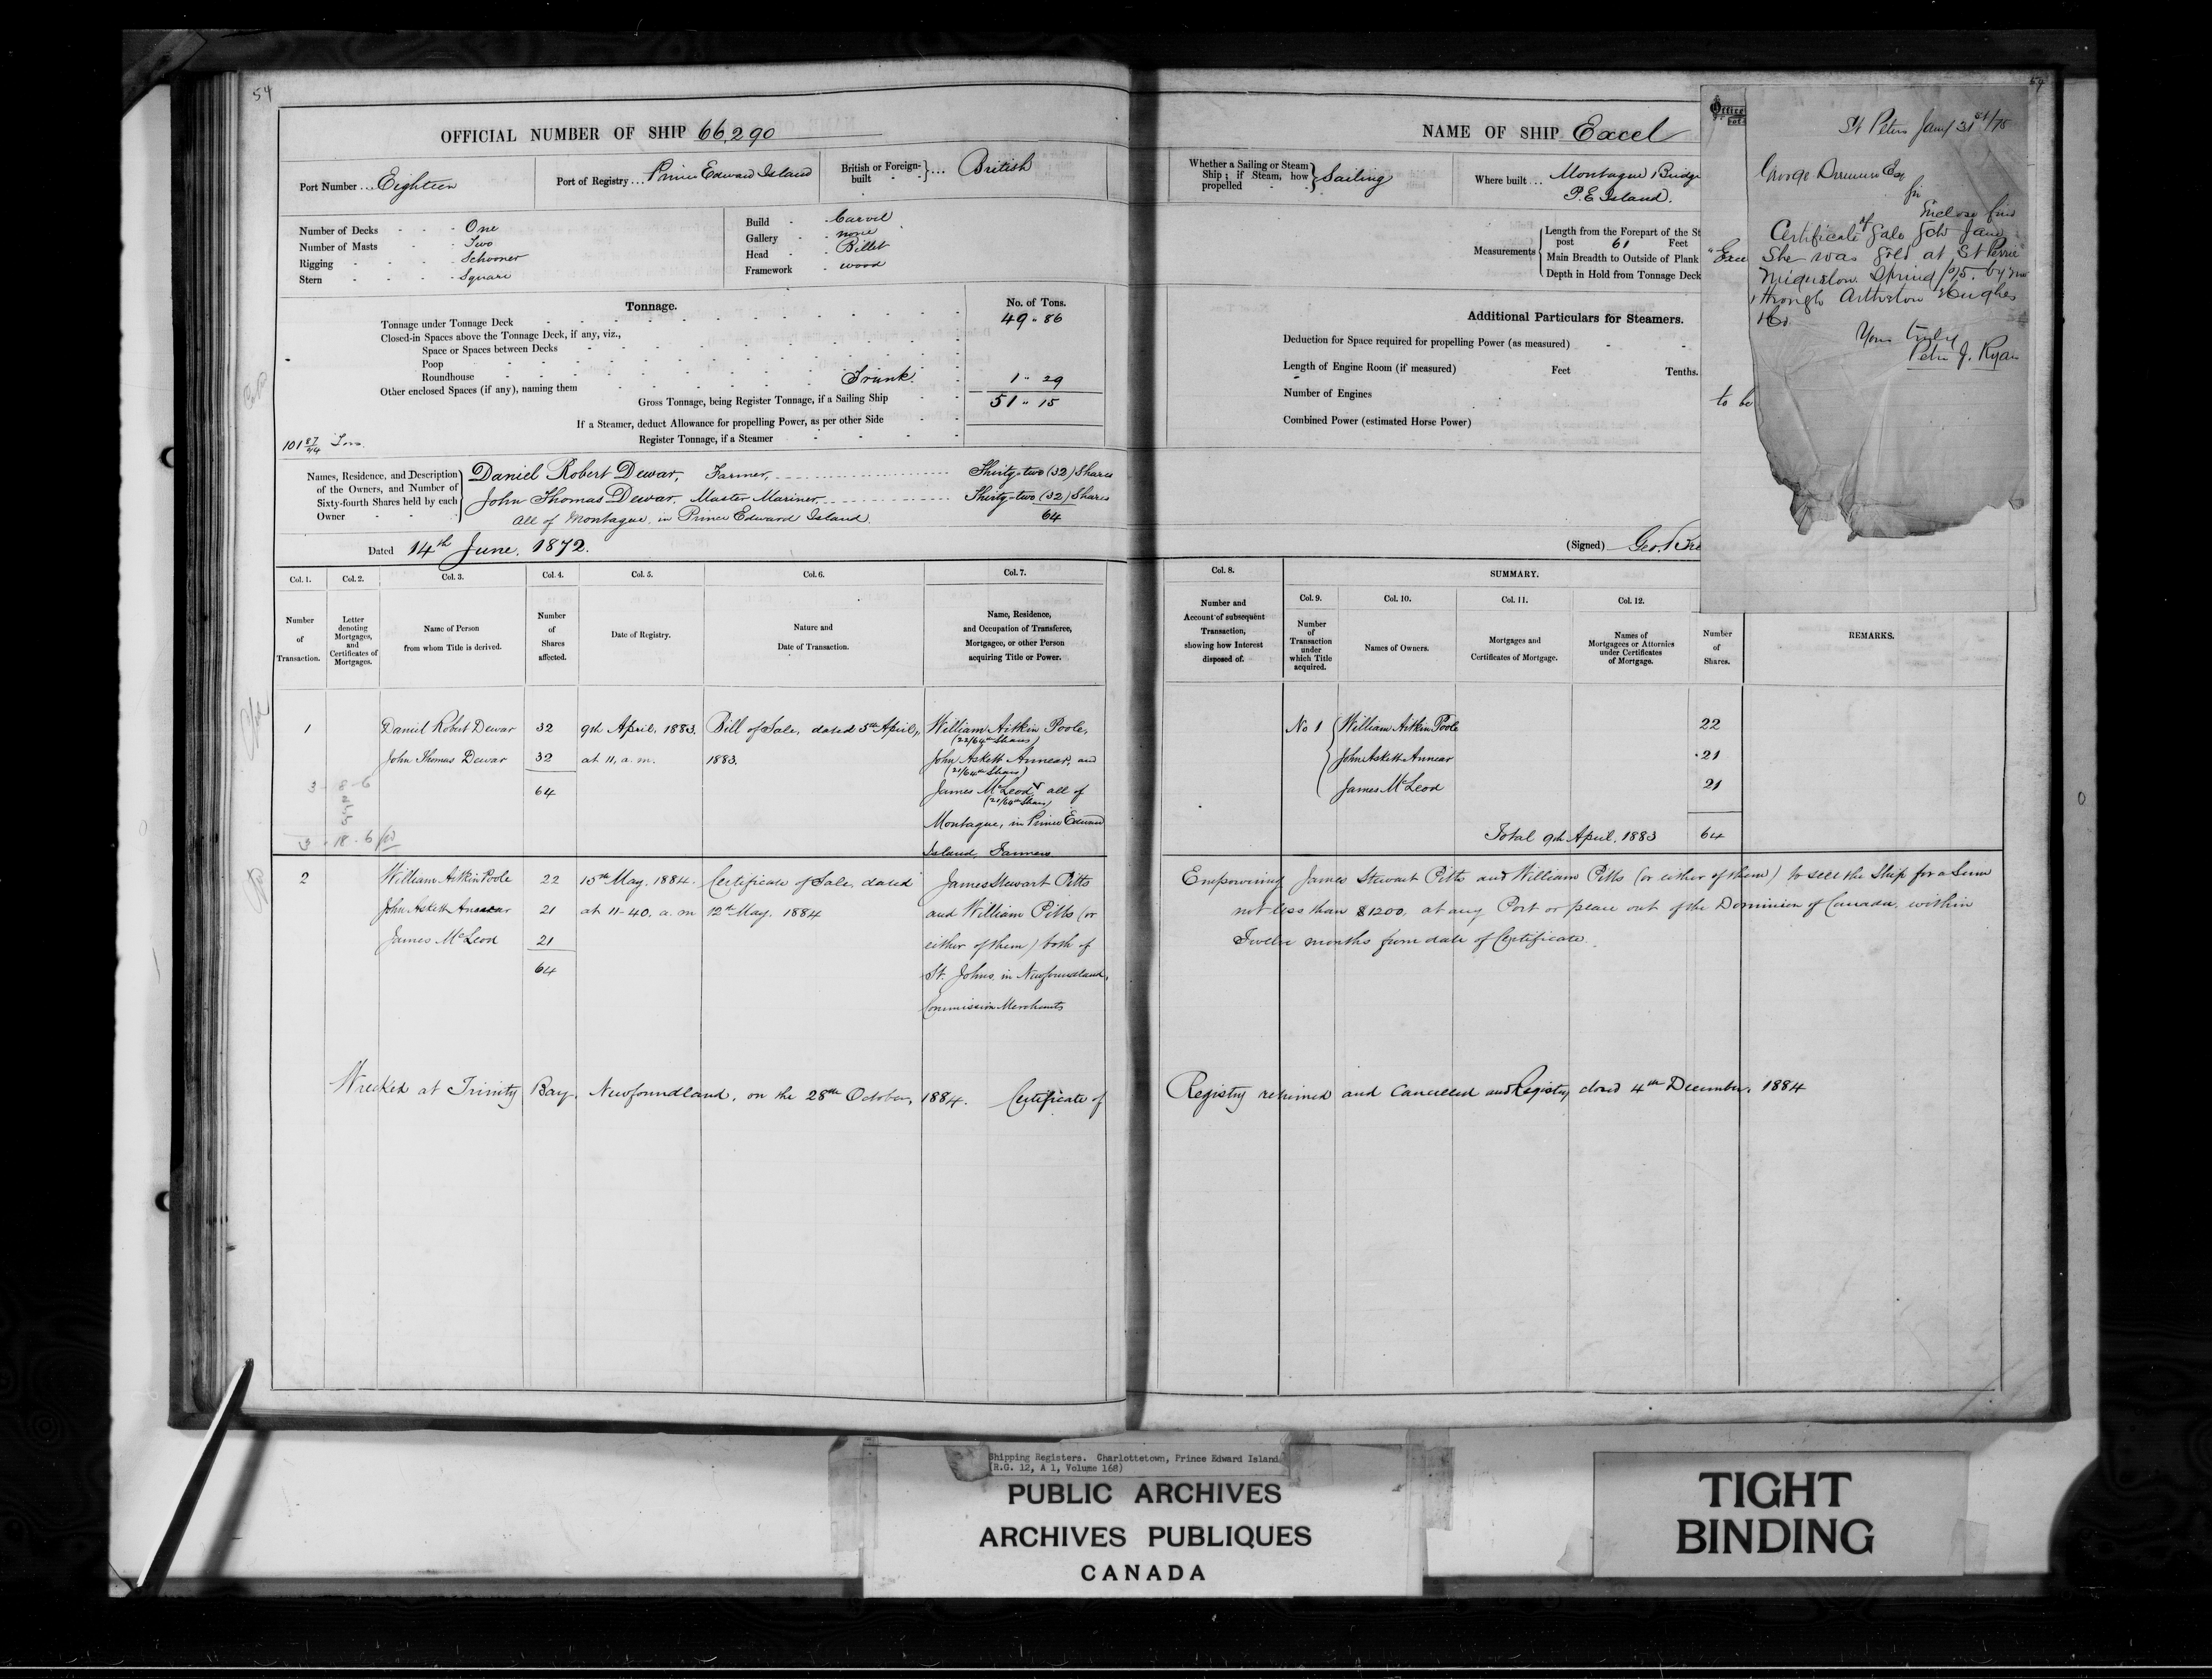 54
OFFICIAL NUMBER OF SHIP 66,290
Port Number ... Eighteen
Port of Registry ... Prince Edward Island
British or Foreign-built } ... British
Number of Decks - - - One
Number of Masts - - - Two
Rigging - - - Schooner
Stern - - - Square
Build - Carvel
Gallery - none
Head - Billet
Framework - wood
Tonnage.
No. of Tons.
Tonnage under Tonnage Deck 49 " 86
Closed-in Spaces above the Tonnage Deck, if any, viz.,
Space or Spaces between Decks
Poop
Roundhouse
Other enclosed Spaces (if any), naming them Trunk. 1 " 29
Gross Tonnage, being Register Tonnage, if a Sailing Ship 51 " 15
If a Steamer, deduct Allowance for propelling Power, as per other Side
Register Tonnage, if a Steamer
101 87/94 Tons
Names, Residence, and Description of the Owners, and Number of Sixty-fourth Shares held by each Owner
Daniel Robert Dewar, Farmer, Thirty-two (32) Shares
John Thomas Dewar, Master Mariner, Thirty-two (32) Shares
All of Montague, in Prince Edward Island. 64
Dated 14th June, 1872.
Col. 1. Col. 2. Col. 3. Col. 4. Col. 5. Col. 6. Col. 7.
Number of Transaction.
Letter denoting Mortgages, and Certificates of Mortgages.
Name of Person from whom Title is derived.
Number of Shares affected.
Date of Registry.
Nature and Date of Transaction.
Name, Residence, and Occupation of Transferee, Mortgagee, or other Person acquiring Title or Power.
1 Daniel Robert Dewar 32 9th April, 1883. Bill of Sale, dated 5th April, William Aitkin Poole,
(22/64th Shares)
John Thomas Dewar 32 at 11, a.m. 1883. John Askett Annear, and
(21/64th Shares)
64 James McLeod all of
(21/64th Shares)
Montague, in Prince Edward
Island, Farmers.
3 8-6
3 18-6
2 William Aitkin Poole 22 15th May, 1884. Certificate of Sale, dated James Stewart Pitts
John Askett Annear 21 at 11-40. a.m 12th May, 1884 and William Pitts (or
James McLeod 21 either of them) both of
64 St. Johns, in Newfoundland,
Commission Merchants
Wrecked at Trinity Bay, Newfoundland, on the 28th October, 1884. Certificate of
54
NAME OF SHIP Excel
Whether a Sailing or Steam Ship; if Steam, how propelled } Sailing
Where built ... Montague Bridge
P. E. Island.
Measurements
Length from the Forepart of the St
post 61 Feet
Main Breadth to Outside of Plank
Depth in Hold from Tonnage Deck
Additional Particulars for Steamers.
Deduction for Space required for propelling Power (as measured)
Length of Engine Room (if measured) Feet Tenths.
Number of Engines
Combined Power (estimated Horse Power)
(Signed) Geo.
Office
of
"Exce
to be
St Peters Jany 31st/75
George
Sir
Enclose find
Certificate of Sale Schr Jane
She was Sold at St Pierre
Miquelon Spring /75. by me
through Hughes
Yours truly
Peter J. Ryan
Col. 8. SUMMARY.
Col. 9. Col. 10. Col. 11. Col. 12.
Number and Account of subsequent Transaction, showing how Interest disposed of.
Number of Transaction under which Title acquired.
Names of Owners.
Mortgages and Certificates of Mortgage.
Names of Mortgagees or Attornies under Certificates of Mortgage.
Number of Shares.
REMARKS.
No 1 William Aitkin Poole 22
John Askett Annear 21
James McLeod 21
Total 9th April, 1883 64
Empowering James Stewart Pitts and William Pitts (or either of them) to sell the Ship for a Sum
not less than $1200, at any Port or place out of the Dominion of Canada, within
Twelve months from date of Certificate.
Registry returned and Cancelled and Registry closed 4th December, 1884
Shipping Registers. Charlottetown, Prince Edward Island
(R.G. 12, A 1, Volume 168)
PUBLIC ARCHIVES
ARCHIVES PUBLIQUES
CANADA
TIGHT
BINDING